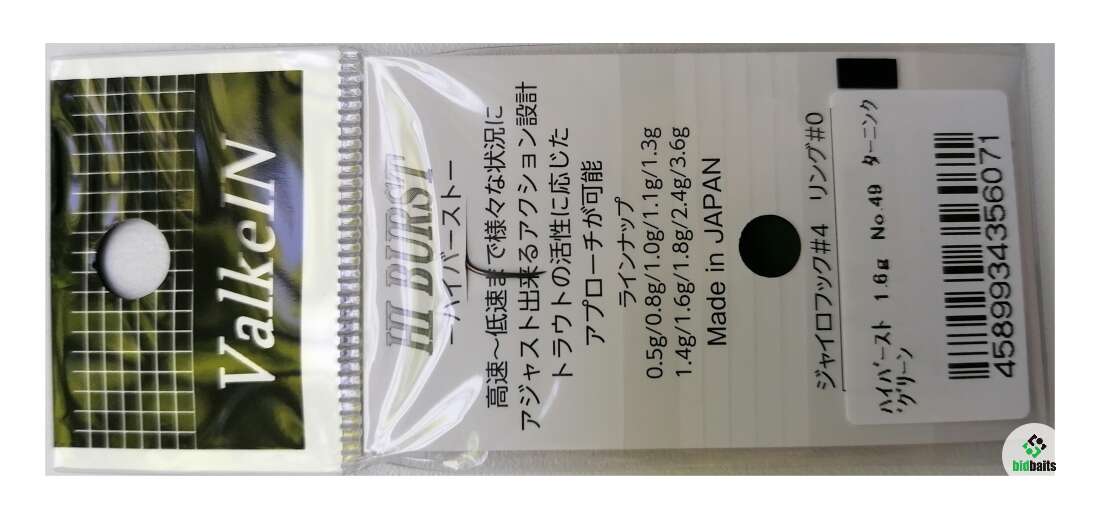 ValkeIN
HI BURST
ーハイバーストー
高速～低速まで様々な状況に
アジャスト出来るアクション設計
トラウトの活性に応じた
アプローチが可能
ラインナップ
0.5g/0.8g/1.0g/1.1g/1.3g
1.4g/1.6g/1.8g/2.4g/3.6g
Made in JAPAN
ジャイロフック#4 リング#0
ハイバースト 1.6g No.49 ターニング
グリーン
4589934356071
bidbaits